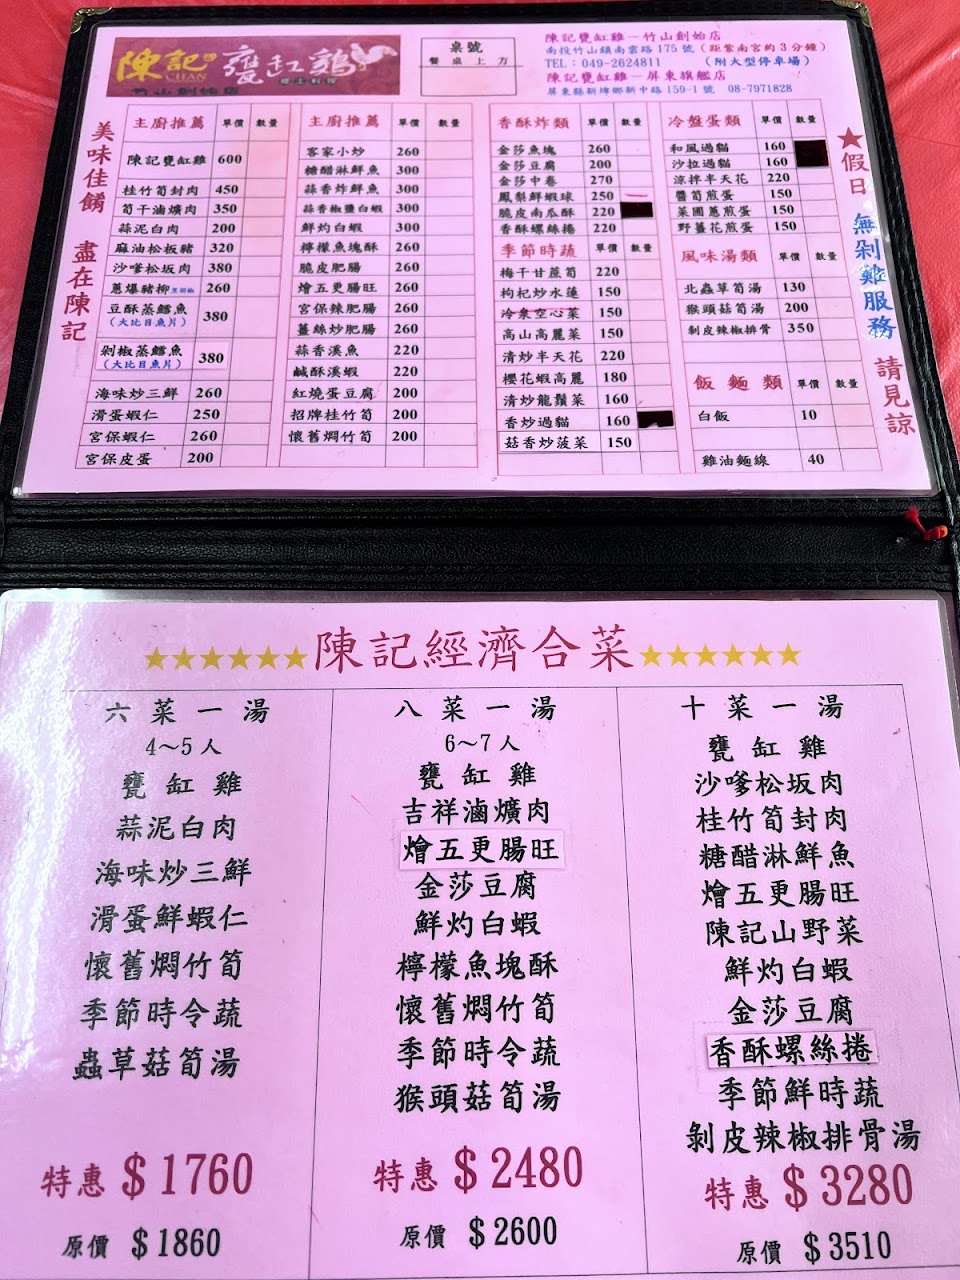 陳記 CHAN 甕缸鷄
鄉土料理
竹山創始店
桌號
餐桌上方
陳記甕缸雞－竹山創始店
南投竹山鎮南雲路175號(距紫南宮約3分鐘)
TEL：049-2624811 (附大型停車場)
陳記甕缸雞－屏東旗艦店
屏東縣新埤鄉新中路159-1號 08-7971828
美味佳餚 盡在陳記
主廚推薦 單價 數量
陳記甕缸雞 600
桂竹筍封肉 450
筍干滷爌肉 350
蒜泥白肉 200
麻油松板豬 320
沙嗲松坂肉 380
蔥爆豬柳 黑胡椒 260
豆酥蒸鱈魚 380
(大比目魚片)
剁椒蒸鱈魚 380
(大比目魚片)
海味炒三鮮 260
滑蛋蝦仁 250
宮保蝦仁 260
宮保皮蛋 200
主廚推薦 單價 數量
客家小炒 260
糖醋淋鮮魚 300
蒜香炸鮮魚 300
蒜香椒鹽白蝦 300
鮮灼白蝦 300
檸檬魚塊酥 260
脆皮肥腸 260
燴五更腸旺 260
宮保辣肥腸 260
薑絲炒肥腸 260
蒜香溪魚 220
鹹酥溪蝦 220
紅燒蛋豆腐 200
招牌桂竹筍 200
懷舊燜竹筍 200
香酥炸類 單價 數量
金莎魚塊 260
金莎豆腐 200
金莎中卷 270
鳳梨鮮蝦球 250
脆皮南瓜酥 220
香酥螺絲捲 220
季節時蔬 單價 數量
梅干甘蓝筍 220
枸杞炒水蓮 150
冷泉空心菜 150
高山高麗菜 150
清炒半天花 220
櫻花蝦高麗 180
清炒龍鬚菜 160
香炒過貓 160
菇香炒菠菜 150
冷盤蛋類 單價 數量
和風過貓 160
沙拉過貓 160
涼拌半天花 220
醬筍煎蛋 150
菜圃蔥煎蛋 150
野薑花煎蛋 150
風味湯類 單價 數量
北蟲草筍湯 130
猴頭菇筍湯 200
剝皮辣椒排骨 350
飯麵類 單價 數量
白飯 10
雞油麵線 40
★假日 無剁雞服務 請見諒
★★★★★★陳記經濟合菜★★★★★★
六菜一湯
4～5人
甕缸雞
蒜泥白肉
海味炒三鮮
滑蛋鮮蝦仁
懷舊燜竹筍
季節時令蔬
蟲草菇筍湯
特惠 $1760
原價 $1860
八菜一湯
6～7人
甕缸雞
吉祥滷爌肉
燴五更腸旺
金莎豆腐
鮮灼白蝦
檸檬魚塊酥
懷舊燜竹筍
季節時令蔬
猴頭菇筍湯
特惠 $2480
原價 $2600
十菜一湯
甕缸雞
沙嗲松坂肉
桂竹筍封肉
糖醋淋鮮魚
燴五更腸旺
陳記山野菜
鮮灼白蝦
金莎豆腐
香酥螺絲捲
季節鮮時蔬
剝皮辣椒排骨湯
特惠 $3280
原價 $3510